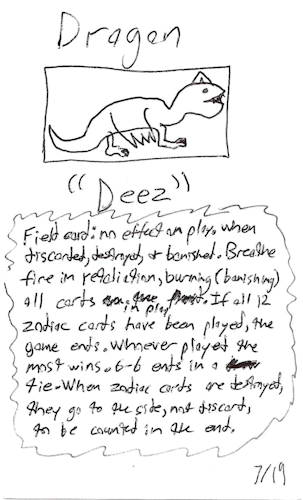 Dragon
"Deez"
Field card: no effect on play. When
discarded, destroyed, or banished. Breathe
fire in retaliation, burning (banishing)
all cards in play. If all 12
zodiac cards have been played, the
game ends. Whoever played the
most wins. 6-6 ends in a
tie. When zodiac cards are destroyed,
they go to the side, not discard,
to be counted in the end.
7/19